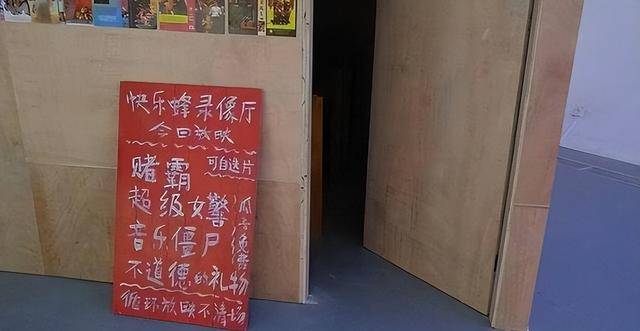 快乐蜂录像厅
今日放映
可自选片
赌霸
超级女警
音乐僵尸
不道德的礼物
瓜子免费
循环放映不清场